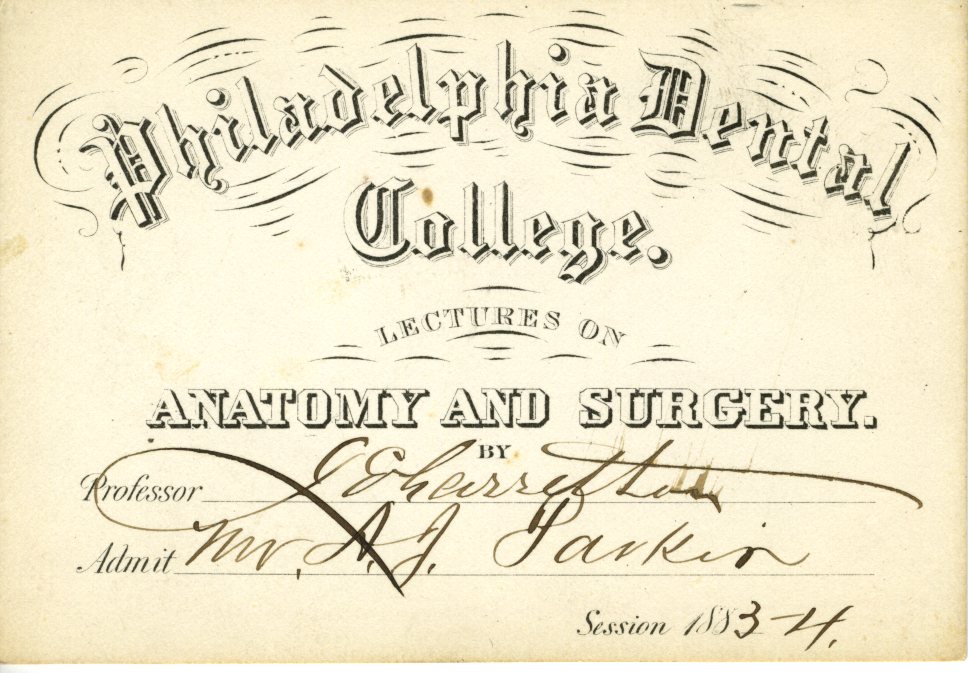 Philadelphia Dental
College.
LECTURES ON
ANATOMY AND SURGERY.
BY
Professor J E Garretson
Admit Mr. A. J. Parkin
Session 1883-4.